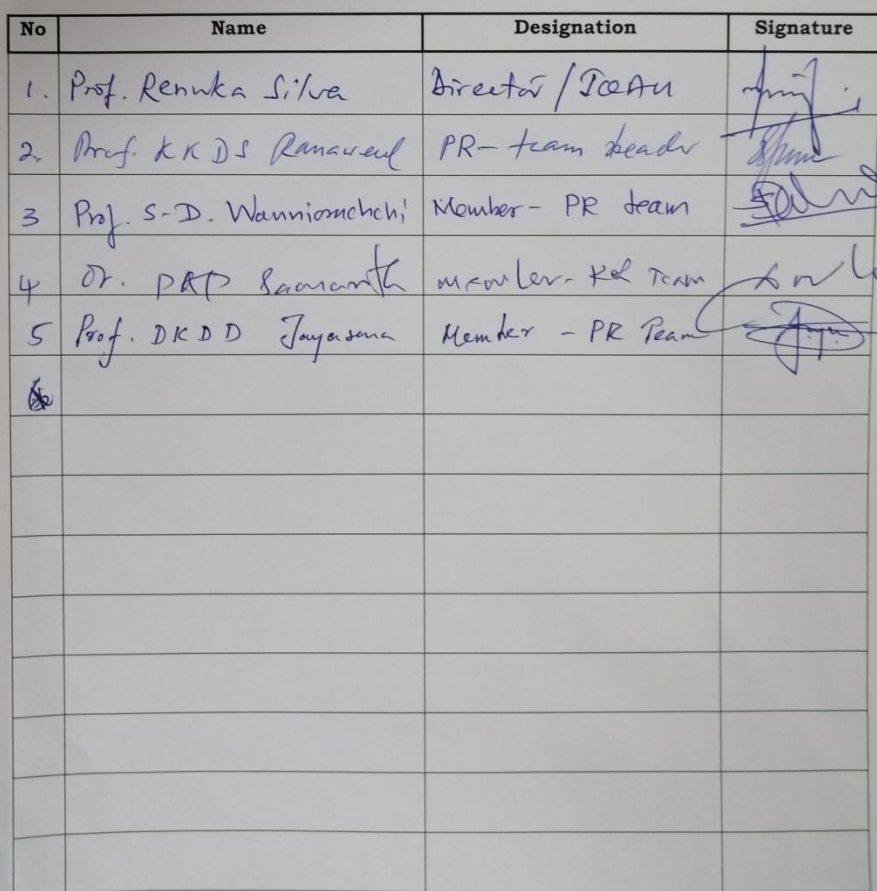 No Name Designation Signature
1. Prof. Renuka Silva Director / IQAU
2. Prof. KKDS Ranaweera PR- team leader
3 Prof. S.D. Wanniarachchi Member- PR team
4 Dr. DAP Member- Team
5 Prof. DKDD Jayasena Member - PR Team